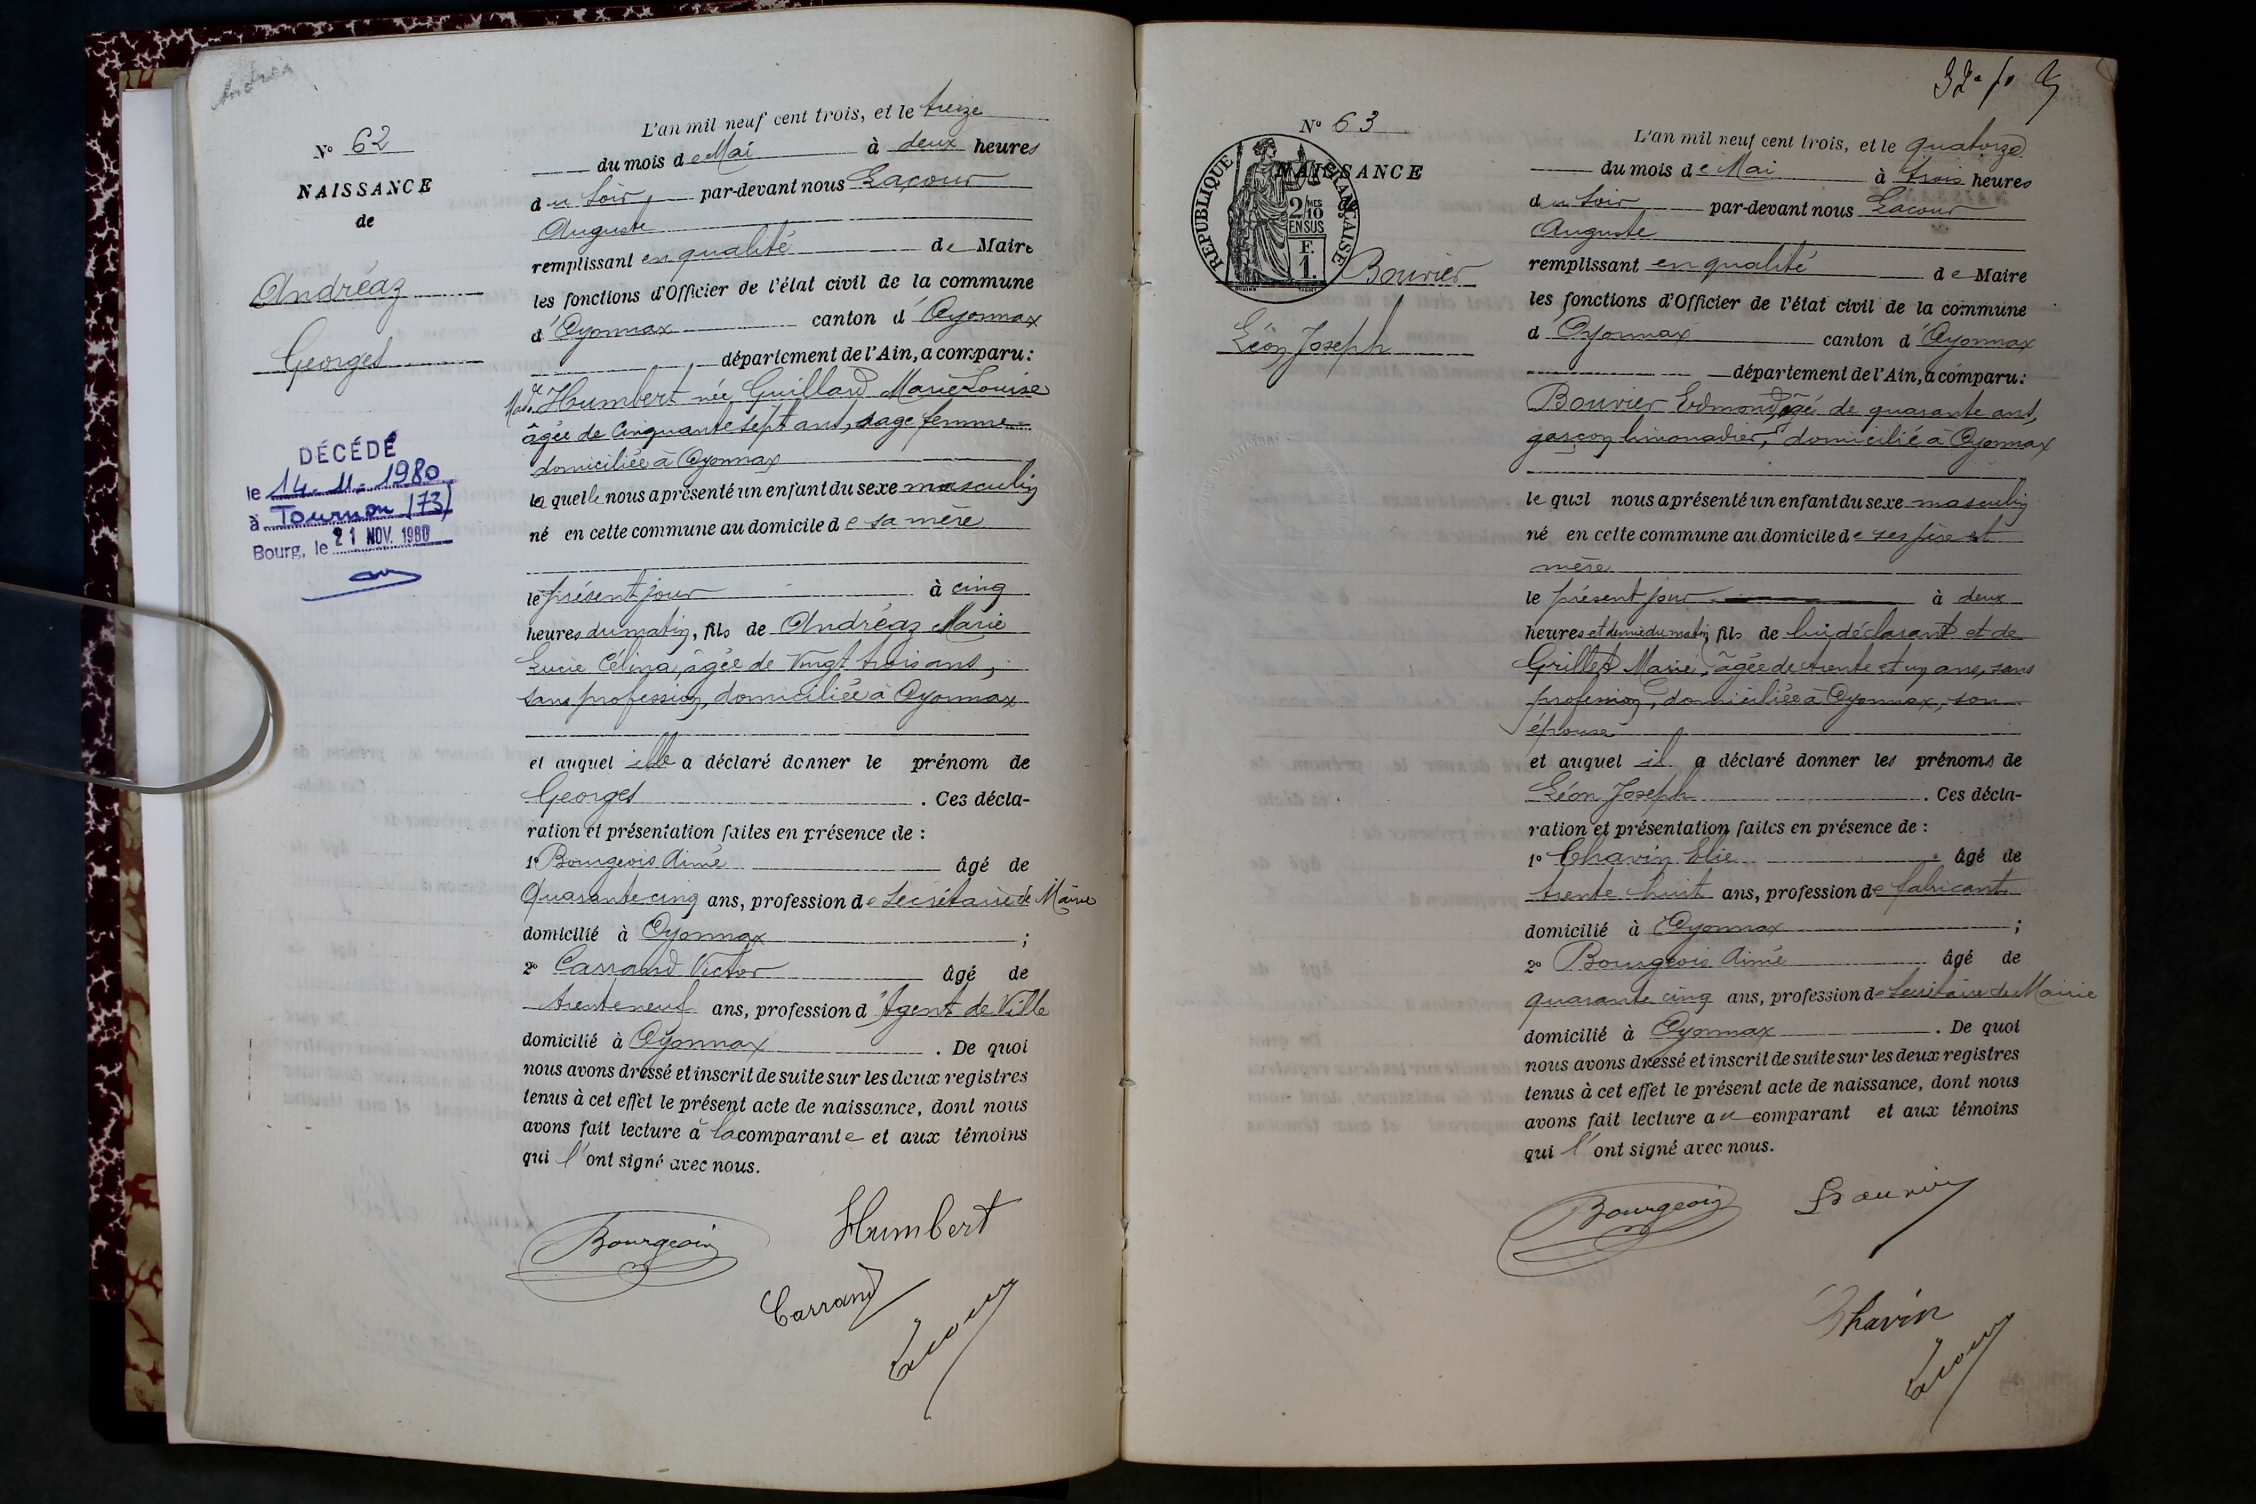 Andréa
N° 62
NAISSANCE
de
Andréaz
Georges
DÉCÉDÉ
le 14-11-1980
à Tournon (73)
Bourg, le 21 NOV. 1980
L'an mil neuf cent trois, et le treize
du mois de Mai à deux heures
du soir par-devant nous Lacour
Auguste
remplissant en qualité de Maire
les fonctions d'Officier de l'état civil de la commune
d'Oyonnax canton d'Oyonnax
département de l'Ain, a comparu:
Made Humbert née Guillard Marie Louise
âgée de Cinquante sept ans, sage femme
domiciliée à Oyonnax
laquelle nous a présenté un enfant du sexe masculin
né en cette commune au domicile de sa mère
le présent jour à cinq
heures du matin, fils de Andréaz Marie
Lucie Célina, âgée de Vingt trois ans,
sans profession, domiciliée à Oyonnax
et auquel elle a déclaré donner le prénom de
Georges. Ces décla-
ration et présentation faites en présence de :
1° Bourgeois Aimé âgé de
Quarante cinq ans, profession de Secrétaire de Mairie
domicilié à Oyonnax ;
2° Carrand Victor âgé de
trente neuf ans, profession d'Agent de Ville
domicilié à Oyonnax. De quoi
nous avons dressé et inscrit de suite sur les deux registres
tenus à cet effet le présent acte de naissance, dont nous
avons fait lecture à la comparante et aux témoins
qui l'ont signé avec nous.
Bourgeois Humbert
Carrand
Lacour
N° 63
NAISSANCE
REPUBLIQUE FRANÇAISE
2/10 MES
EN SUS
F.
1.
Bouvier
Léon Joseph
L'an mil neuf cent trois, et le quatorze
du mois de Mai à trois heures
du soir par-devant nous Lacour
Auguste
remplissant en qualité de Maire
les fonctions d'Officier de l'état civil de la commune
d Oyonnax canton d'Oyonnax
département de l'Ain, a comparu:
Bouvier Edmond, âgé de quarante ans,
garçon limonadier, domicilié à Oyonnax
lequel nous a présenté un enfant du sexe masculin
né en cette commune au domicile de ses père et
mère
le présent jour à deux
heures et demie du matin fils de lui déclarant et de
Grillet Marie, âgée de trente et un ans, sans
profession, domiciliée à Oyonnax, son
épouse
et auquel il a déclaré donner les prénoms de
Léon Joseph. Ces décla-
ration et présentation faites en présence de :
1° Chavin Elie âgé de
trente huit ans, profession de fabricant
domicilié à Oyonnax ;
2° Bourgeois Aimé âgé de
quarante cinq ans, profession de Secrétaire de Mairie
domicilié à Oyonnax. De quoi
nous avons dressé et inscrit de suite sur les deux registres
tenus à cet effet le présent acte de naissance, dont nous
avons fait lecture au comparant et aux témoins
qui l'ont signé avec nous.
Bourgeois Bouvier
Chavin
Lacour